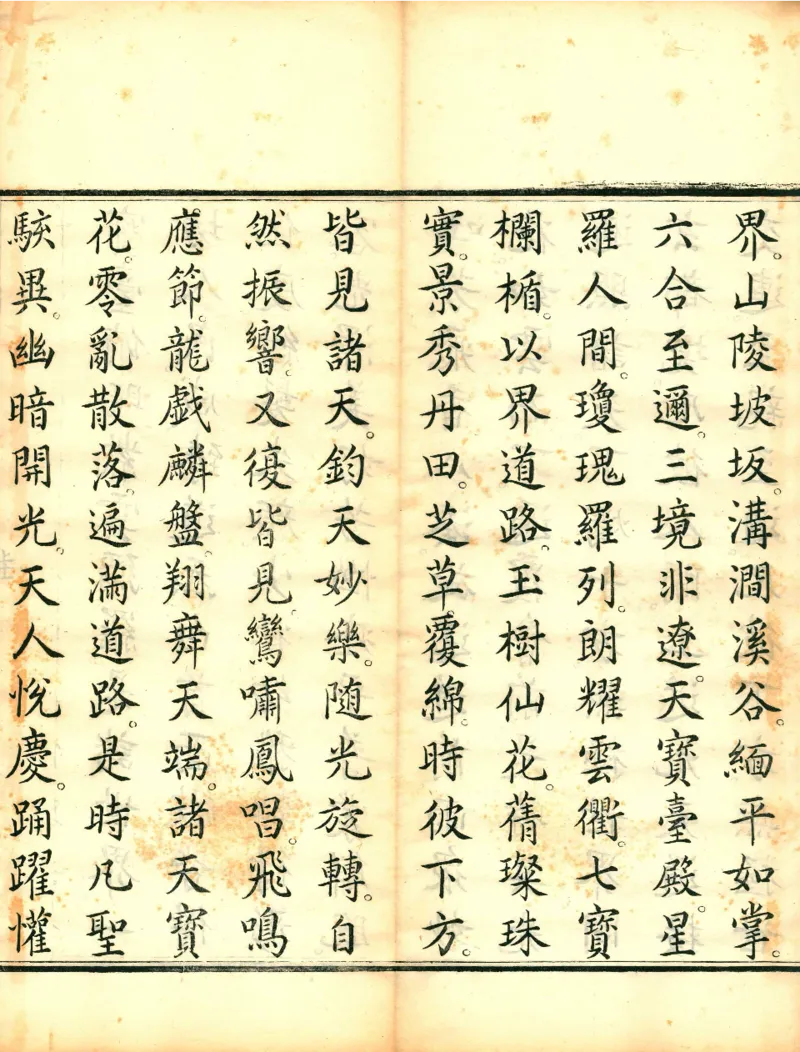 界。山陵坡坂。溝澗溪谷。緬平如掌。
六合至邇。三境非遼。天寶臺殿。星
羅人間。瓊瑰羅列。朗耀雲衢。七寶
欄楯。以界道路。玉樹仙花。蒨璨珠
實。景秀丹田。芝草覆綿。時彼下方。
皆見諸天。鈞天妙樂。随光旋轉。自
然振響。又復皆見。鸞嘯鳳唱。飛鳴
應節。龍戲麟盤。翔舞天端。諸天寶
花。零亂散落。遍滿道路。是時凡聖
駭異。幽暗開光。天人悅慶。踊躍懽